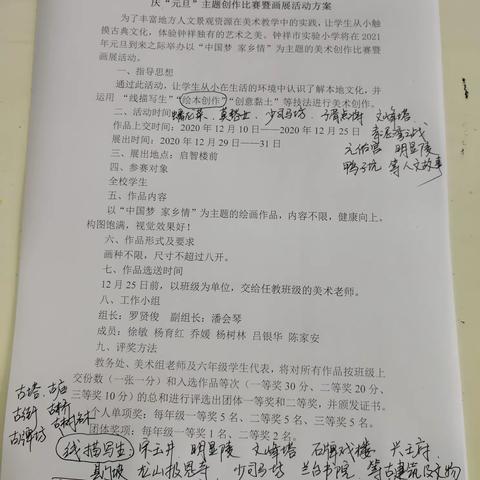 庆“元旦”主题创作比赛暨画展活动方案
为了丰富地方人文景观资源在美术教学中的实践，让学生从小触
摸古典文化，体验钟祥独有的艺术之美。钟祥市实验小学将在 2021
年元旦到来之际举办以“中国梦 家乡情”为主题的美术创作比赛暨
画展活动。
一、指导思想
通过此活动，让学生从小在生活的环境中认识了解本地文化，并
运用 “线描写生”“绘本创作”“创意黏土” 等技法进行美术创作。
二、活动时间
莫愁女、少司马坊、 文峰塔
作品上交时间：2020 年 12 月 10 日——2020 年 12 月 25 日
展出时间：2020 年 12 月 29 日——31 日
元佑宫 明显陵
三、展出地点：启智楼前
等人文故事
四、参赛对象
全校学生
五、作品内容
以“中国梦 家乡情”为主题的绘画作品，内容不限，健康向上。
构图饱满，视觉效果好！
六、作品形式及要求
画种不限，尺寸不超过八开。
七、作品选送时间
12 月 25 日前，以班级为单位，交给任教班级的美术老师。
八、工作小组
组长：罗贤俊 副组长：潘会琴
成员：徐敏 杨育红 乔媛 杨树林 吕银华 陈家安
九、评奖方法
教务处、美术组老师及六年级学生代表，将对所有作品按班级上
交份数（一张一分）和入选作品等次（一等奖 30 分、二等奖 20 分、
三等奖 10 分）的总和进行评选出团体一等奖和二等奖，并颁发证书。
个人单项奖：每年级一等奖 5 名、二等奖 5 名，三等奖 5 名。
团体奖项：每年级一等奖 1 名、二等奖 2 名。
古塔、古店
古街 古桥
古牌坊 古树
线描写生：宋玉井 明显陵 文峰塔 石牌戏楼 兴王府
龙山报恩寺 少司马坊 兰台书院 等古建筑及文物